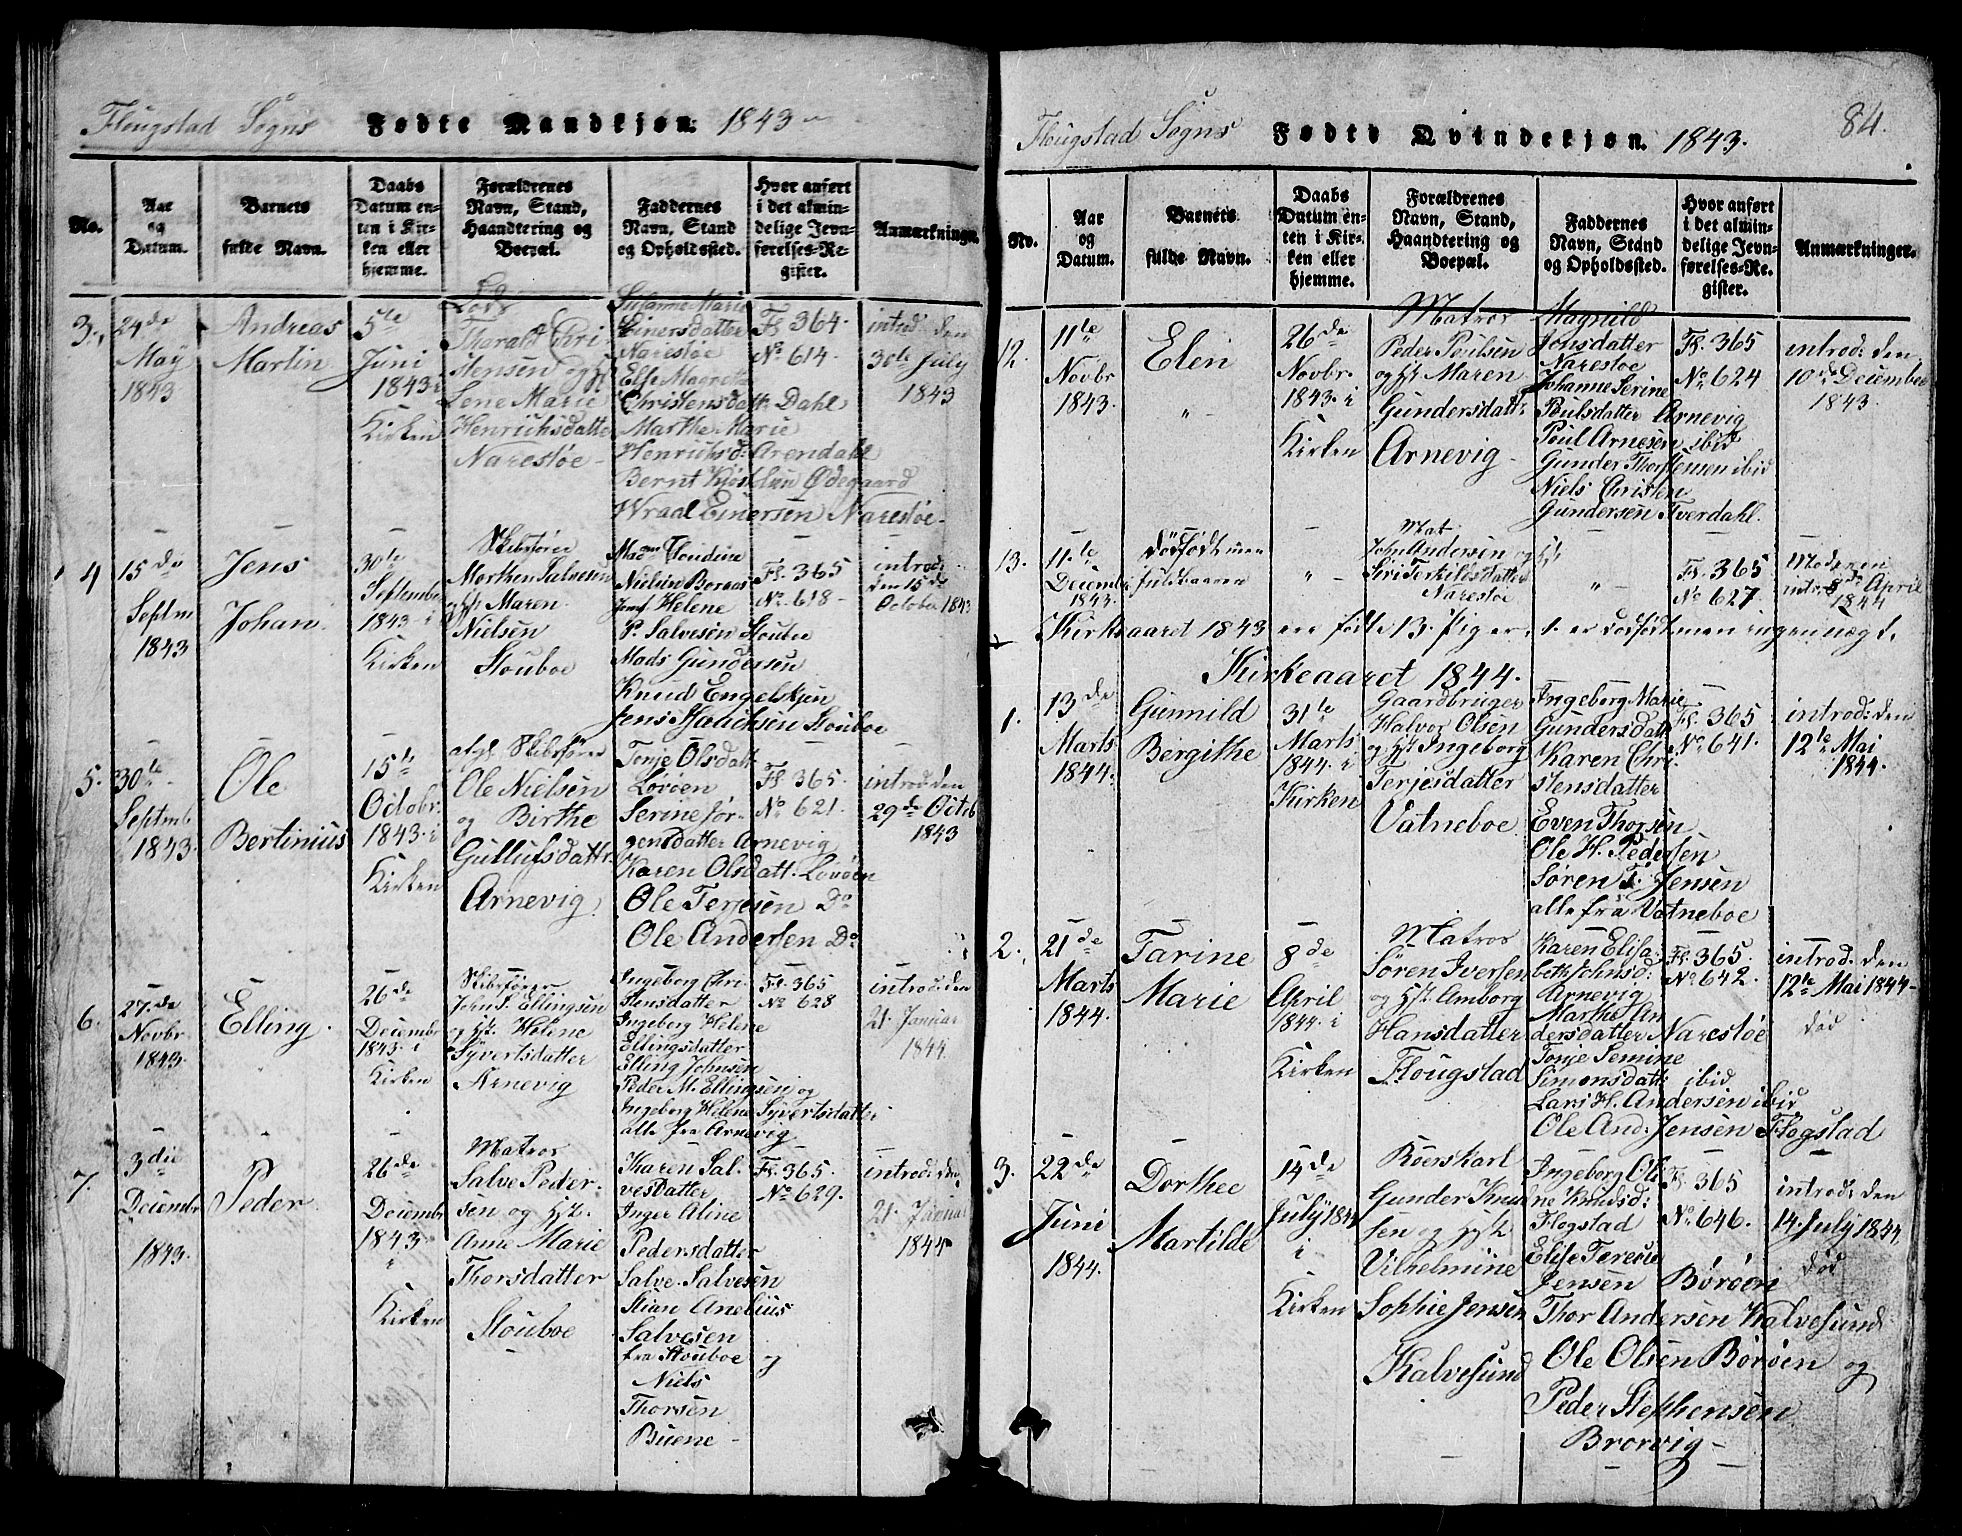 Flougstad Sogns Fødte Mandkjøn. 1843
No.
Aar og Datum.
Barnets fulde Navn.
Daabs Datum enten i Kirken eller hjemme.
Forældrenes Navn, Stand, Haandtering og Boepæl.
Faddernes Navn, Stand og Opholdssted.
Hvor anført i det almindelige Jevnførelses-Register.
Anmærkninger.
3.
24de
May
1843
Andreas
Martin
5te
Juni
1843 i
Kirken
Lods
Tharald Chri
stensen og H.
Lene Marie
Henrichsdatter
Narestøe
Susanne Marie
Einersdatter
Narestøe
Else Magrete
Christensdatt: Dahl
Marthe Marie
Henrichsd: Arendahl
Bernt Ødegaard
Wraal Einersen Narestøe
Fl. 364.
No 614.
introd: den
30te July
1843
4
15de
Septm
1843
Jens
Johan
30te
September
1843 i
Kirken
Skibsfører
Morthen Salvesen
og H. Maren
Nielsen
Stouboe
Madm
Nielsen Boraas
Jomf Helene
P. Salvesen Stouboe
Mads Gundersen
Knud Engelskjen
Jens Isaachsen Stouboe
Fl. 365
No 618
introd:
den 15de
October 1843
5.
30te
Septmb
1843.
Ole
Bertinius
15te
Octobr.
1843 i
Kirken
afgl. Skibsfører
Ole Nielsen
og Birthe
Gullufsdattr.
Arnevig
Tonje Olsdatt
Løvøen
Serine Jør-
gensdatter Arnevig
Karen Olsdatt. Løvøen
Ole Terjesen Do
Ole Andersen Do
Fl. 365.
No 621.
introd: den
29de Octb
1843
6.
27de
Novbr
1843
Elling
26de
Decembr
1843 i
Kirken
Skibsfører
John S. Ellingsen
og H. Helene
Syvertsdatter
Arnevig
Ingeborg Chri-
stensdatter
Ingeborg Helene
Ellingsdatter
Elling Johnsen
Peder M. Ellingsen og
Ingeborg Helene Syvertsdatter
alle fra Arnevig
Fl. 365
No 628
introd: den
21. Januar
1844
7
3die
Decembr
1843.
Peder
26de
Decembr
1843
"
Kirken
Matros
Salve Peder-
sen og H.
Anne Marie
Thorsdatter
Stouboe
Karen Sal-
vesdatter
Inger Aline
Pedersdatter
Salve Salvesen
Stian Anelius
Salvesen
fra Stouboe og
Niels
Thorsen
Buene
Fl. 365.
No 629.
introd: den
21. Januar
1844
Flougstad Sogns Fødte Qvindekjøn. 1843. 84.
No.
Aar og Datum.
Barnets fulde Navn.
Daabs Datum enten i Kirken eller hjemme.
Forældrenes Navn, Stand, Haandtering og Boepæl.
Faddernes Navn, Stand og Opholdssted.
Hvor anført i det almindelige Jevnførelses-Register.
Anmærkninger.
12.
11te
Novbr
1843.
Elen
"
26de
Novbr.
1843 i
Kirken
Matros
Peder Poulsen
og H. Maren
Gundersdattr
Arnevig
Magnild
Johsdatter
Narestøe
Johanne Serine
Poulsdatter Arnevig
Poul Arnesen ibid
Gunder Thorstensen ibid
Niels Christen
Gundersen Tverdahl.
Fl. 365
No 624
introd: den
10de December
1843.
13.
11te
Decembr
1843.
dødfødt men
fuldbaaren
"
Mat
John Andersen og H
Siri Terkildsdatter
Narestøe
"
Fl. 365
No 627
Moderen
introd: 8de April
1844
Kirkeaaret 1843 ere fødte 13 Piger, 1 er dødfødt men ingen uægte.
Kirkeaaret 1844.
1.
13de
Marts
1844.
Gunnild
Bergithe
31te
Marts
1844 i
Kirken
Gaardbruger
Halvor Olsen
og H. Ingeborg
Terjesdatter
Vatneboe
Ingeborg Marie
Gundersdatt
Karen Chri
stensdatter
Even Thorsen
Ole H. Pedersen
Søren T. Jensen
alle fra Vatneboe
Fl. 365
No 641.
introd: den
12te Mai
1844.
2.
21de
Marts
1844.
Tarine
Marie
8de
April
1844 i
Kirken
Matros
Søren Iversen
og H. Amborg
Hansdatter
Flougstad
Karen Elisa-
beth Johnsd:
Arnevig
Marthe An
dersdatter Narestøe
Tonje Semine
Simonsdatt: ibid
Lars H. Andersen ibid
Ole And: Jensen Flogstad
Fl. 365.
No 642.
introd: den
12te Mai 1844
død
3.
22de
Juni
1844.
Dorthee
Martilde
14de
July 1844
i
Kirken
Røerskarl
Gunder Knud
sen og H
Vilhelmine
Sophie Jensen
Kalvesund
Ingeborg Ole
ne Knudsd:
Flogstad
Elise Teresie
Jensen Børøen
Thor Andersen Kalvesund
Ole Olsen Børøen og
Peder Stephensen
Brorvig
Fl. 365
No 646.
introd: den
14. July 1844
død